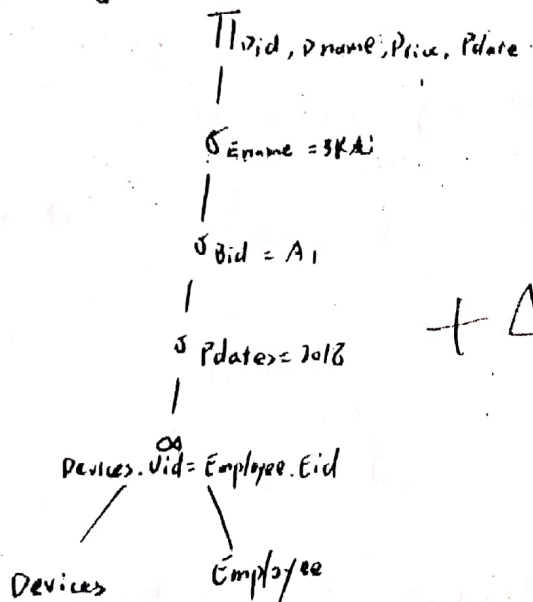 Π Did, Dname, Price, Pdate
σ Ename =
σ Bid = A1
σ Pdate>= 2018
∞
Devices.Uid= Employee.Eid
Devices
Employee